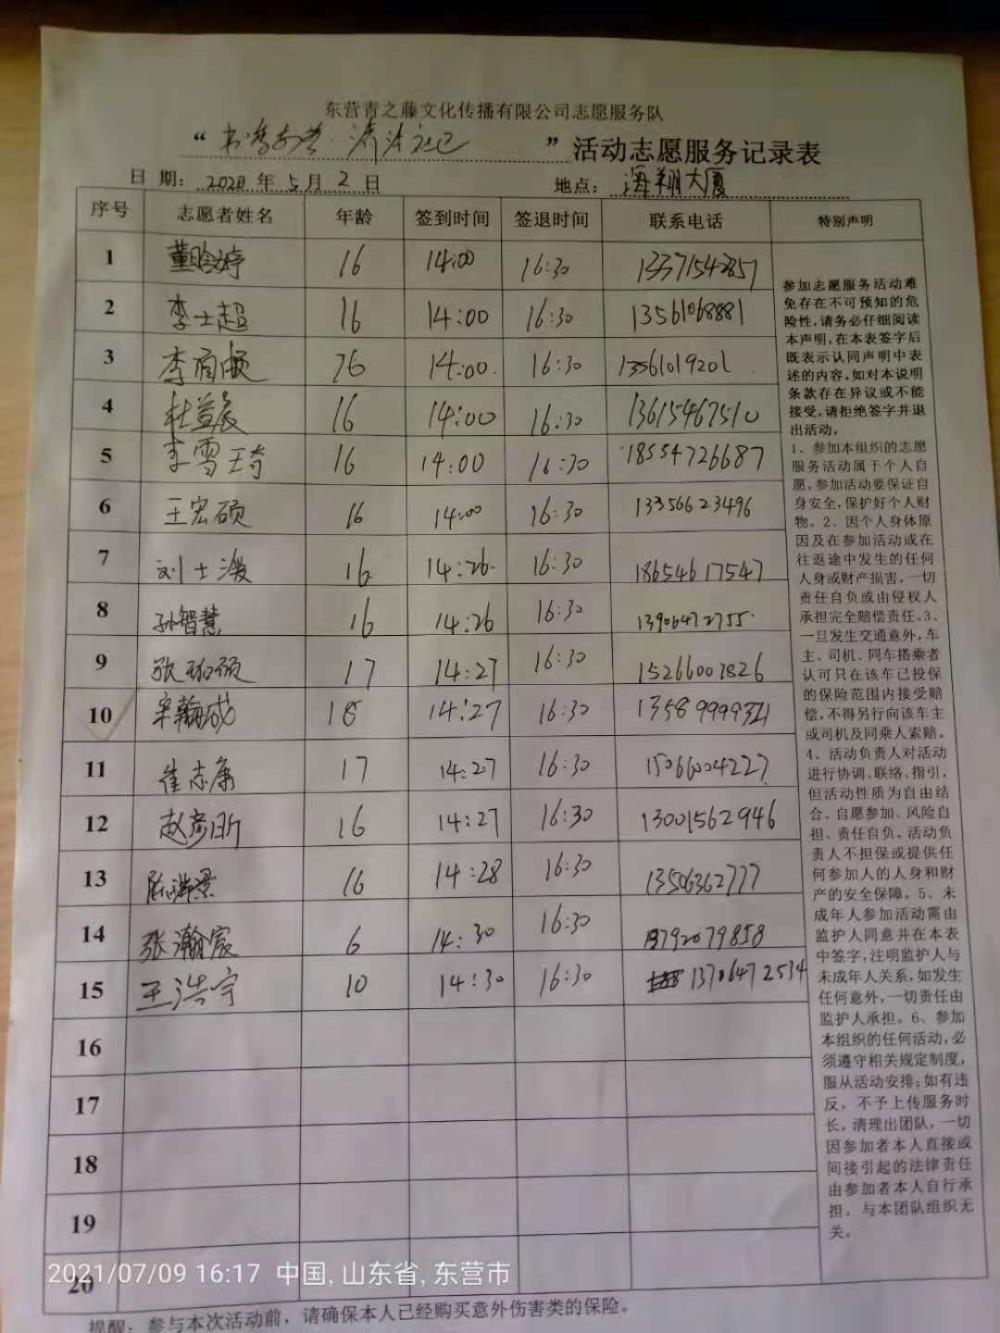 东营青之藤文化传播有限公司志愿服务队
“书香东营·清清社区”活动志愿服务记录表
日期: 2020年5月2日 地点: 海翔大厦
序号 志愿者姓名 年龄 签到时间 签退时间 联系电话 特别声明
1 董晗婷 16 14:00 16:30
2 李士超 16 14:00 16:30 13561068881
3 16 14:00 16:30 13561019201
4 杜益晨 16 14:00 16:30 13615467510
5 李雪琦 16 14:00 16:30 18554726687
6 王宏硕 16 14:00 16:30 13356623496
7 刘士 16 14:26 16:30 18654617547
8 孙智慧 16 14:26 16:30 13906472755
9 张 硕 17 14:27 16:30 15266007826
10 宋翰成 18 14:27 16:30
11 崔志康 17 14:27 16:30 15066004227
12 赵彦昕 16 14:27 16:30 13001562946
13 16 14:28 16:30 13506362777
14 张瀚宸 6 14:30 16:30
15 王浩宇 10 14:30 16:30 13706472534
16
17
18
19
20
参加志愿服务活动难
免存在不可预知的危
险性,请务必仔细阅读
本声明,在本表签字后
既表示认同声明中表
述的内容,如对本说明
条款存在异议或不能
接受,请拒绝签字并退
出活动。
1、参加本组织的志愿
服务活动属于个人自
愿,参加活动要保证自
身安全,保护好个人财
物。2、因个人身体原
因及在参加活动或在
往返途中发生的任何
人身或财产损害,一切
责任自负或由侵权人
承担完全赔偿责任。3、
一旦发生交通意外,车
主、司机、同车搭乘者
认可只在该车已投保
的保险范围内接受赔
偿,不得另行向该车主
或司机及同乘人索赔。
4、活动负责人对活动
进行协调、联络、指引,
但活动性质为自由结
合、自愿参加、风险自
担、责任自负。活动负
责人不担保或提供任
何参加人的人身和财
产的安全保障。5、未
成年人参加活动需由
监护人同意并在本表
中签字,注明监护人与
未成年人关系,如发生
任何意外,一切责任由
监护人承担。6、参加
本组织的任何活动,必
须遵守相关规定制度,
服从活动安排;如有违
反,不予上传服务时
长,清理出团队,一切
因参加者本人直接或
间接引起的法律责任
由参加者本人自行承
担,与本团队组织无
关。
2021/07/09 16:17 中国,山东省,东营市
提醒:参与本次活动前,请确保本人已经购买意外伤害类的保险。